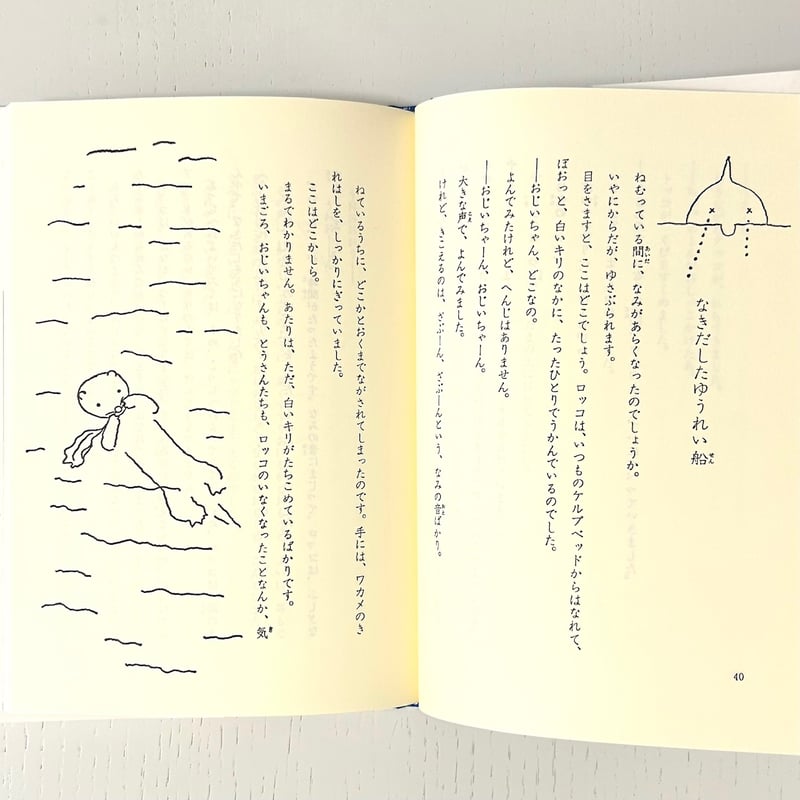 なきだしたゆうれい船
せん
ねむっている間に、なみがあらくなったのでしょうか。
あいだ
いやにからだが、ゆさぶられます。
目をさますと、ここはどこでしょう。ロッコは、いつものケルプベッドからはなれて、
ぼおっと、白いキリのなかに、たったひとりでうかんでいるのでした。
――おじいちゃん、どこなの。
よんでみたけれど、へんじはありません。
――おじいちゃーん、おじいちゃーん。
大きな声で、よんでみました。
こえ
けれど、きこえるのは、ざぶーん、ざぶーんという、なみの音ばかり。
おと
40
ねているうちに、どこかとおくまでながされてしまったのです。手には、ワカメのき
れはしを、しっかりにぎっていました。
ここはどこかしら。
まるでわかりません。あたりは、ただ、白いキリがたちこめているばかりです。
いまごろ、おじいちゃんも、とうさんたちも、ロッコのいなくなったことなんか、気
き